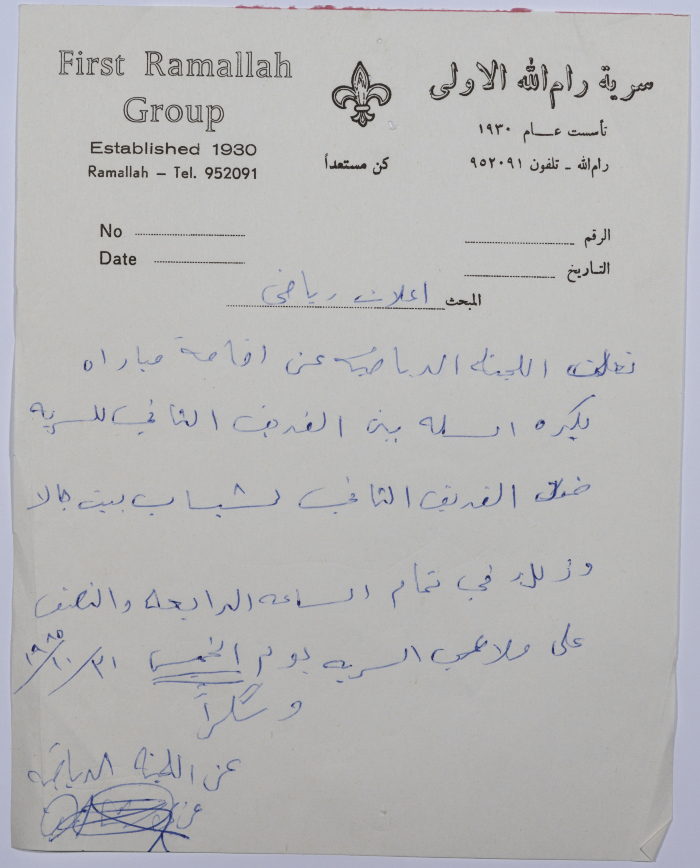 First Ramallah
Group
Established 1930
Ramallah – Tel. 952091
سرية رام الله الاولى
تأسست عـــام ١٩٣٠
رام الله ـ تلفون ٩٥٢٠٩١
كن مستعداً
No
Date
الرقم
التاريخ
المبحث اعلان رياضي
تعلن اللجنة الرياضيه عن اقامة مباراه
بكره السله بين الفريق الثاني للسريه
ضد الفريق الثاني لشباب بيت جالا
وذلك في تمام الساعه الرابعه والنصف
على ملاعب السريه يوم الخميس ٣١/١٠/١٩٨٥
وشكراً
عن اللجنة الرياضيه
عن